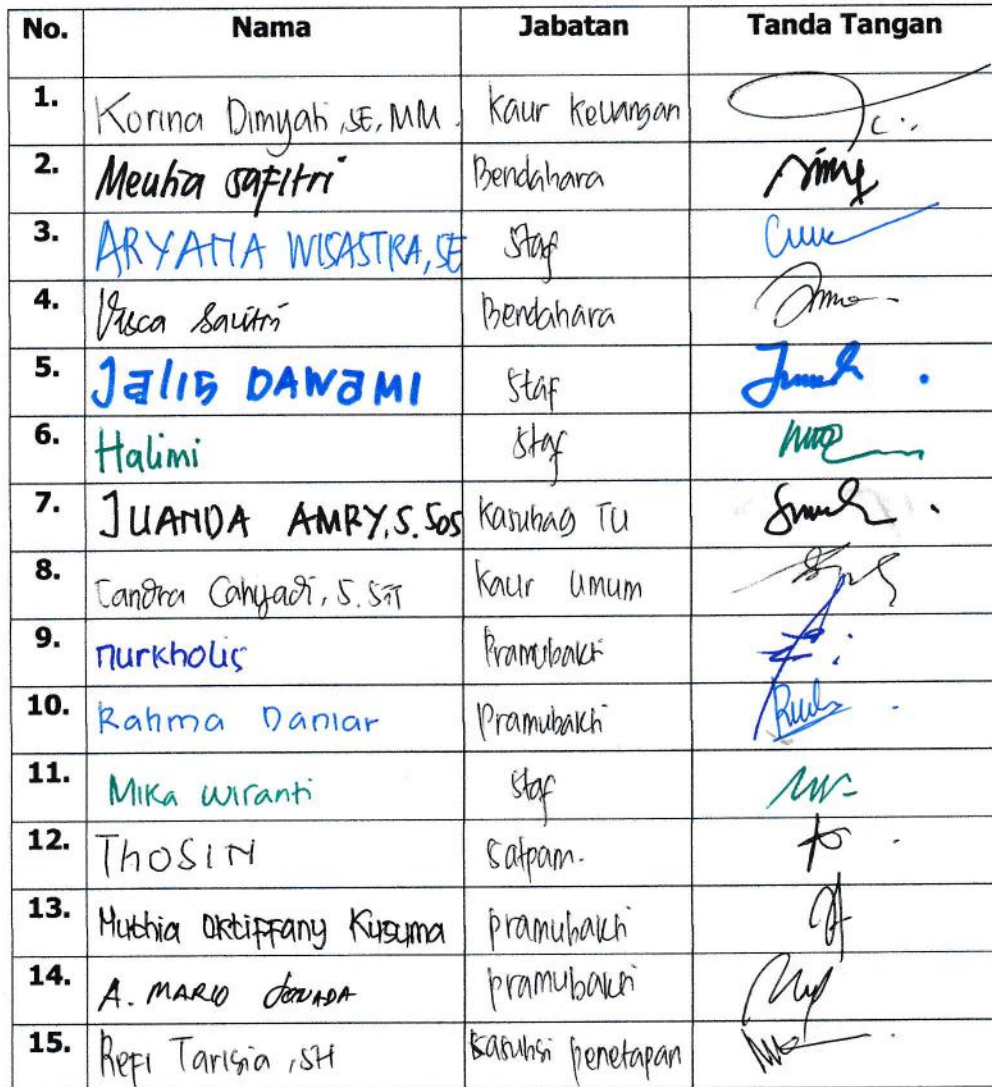 No. Nama Jabatan Tanda Tangan
1. Korina Dimyati, SE, MM. Kaur Keuangan
2. Meutia Safitri Bendahara
3. ARYAMA WISASTRA, SE Staf
4. Visca Savitri Bendahara
5. Jalis DAWAMI Staf
6. Halimi Staf
7. JUANDA AMRY, S.Sos Kasubag TU
8. Candra Cahyadi, S.SiT Kaur Umum
9. nurkholis Pramubakti
10. Rahma Daniar Pramubakti
11. Mika wiranti Staf
12. THOSIN Satpam.
13. Muthia Oktiffany Kusuma pramubakti
14. A. MARIO pramubakti
15. Refi Tarisia, SH Kasubsi penetapan